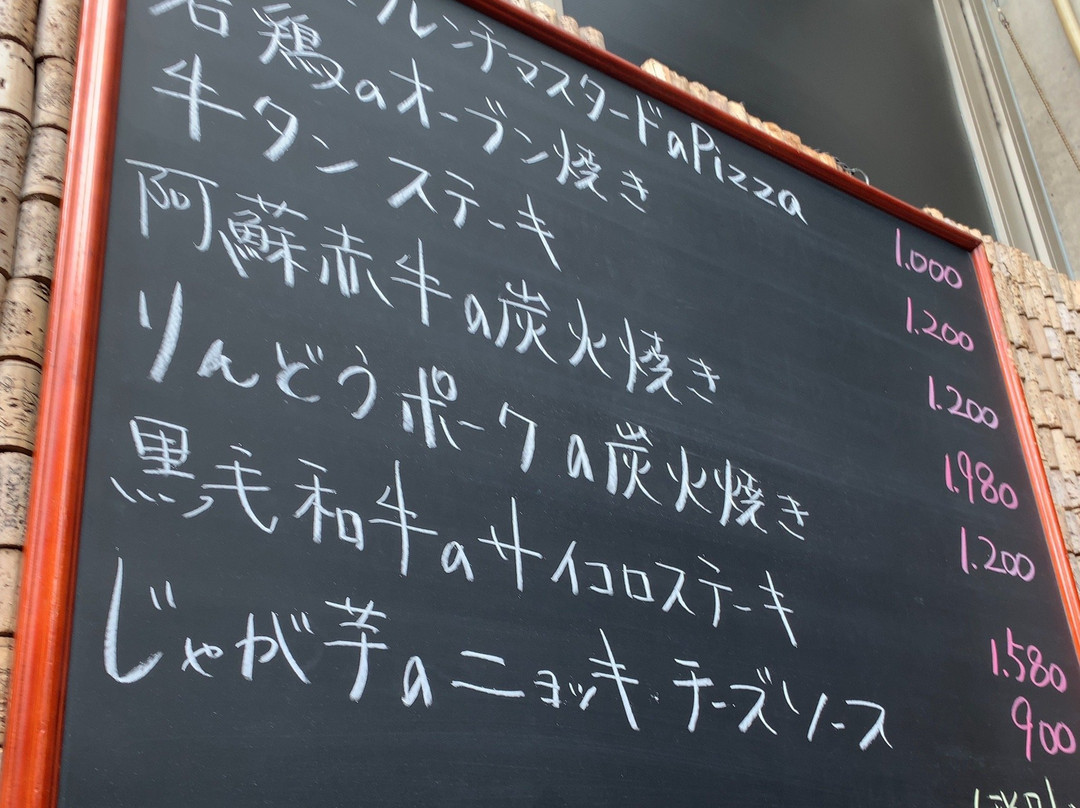 フレンチマスタードのPizza 1.000
若鶏のオーブン焼き 1.200
牛タンステーキ 1.200
阿蘇赤牛の炭火焼き 1.980
りんどうポークの炭火焼き 1.200
黒毛和牛のサイコロステーキ 1.580
じゃが芋のニョッキ・チーズソース 900